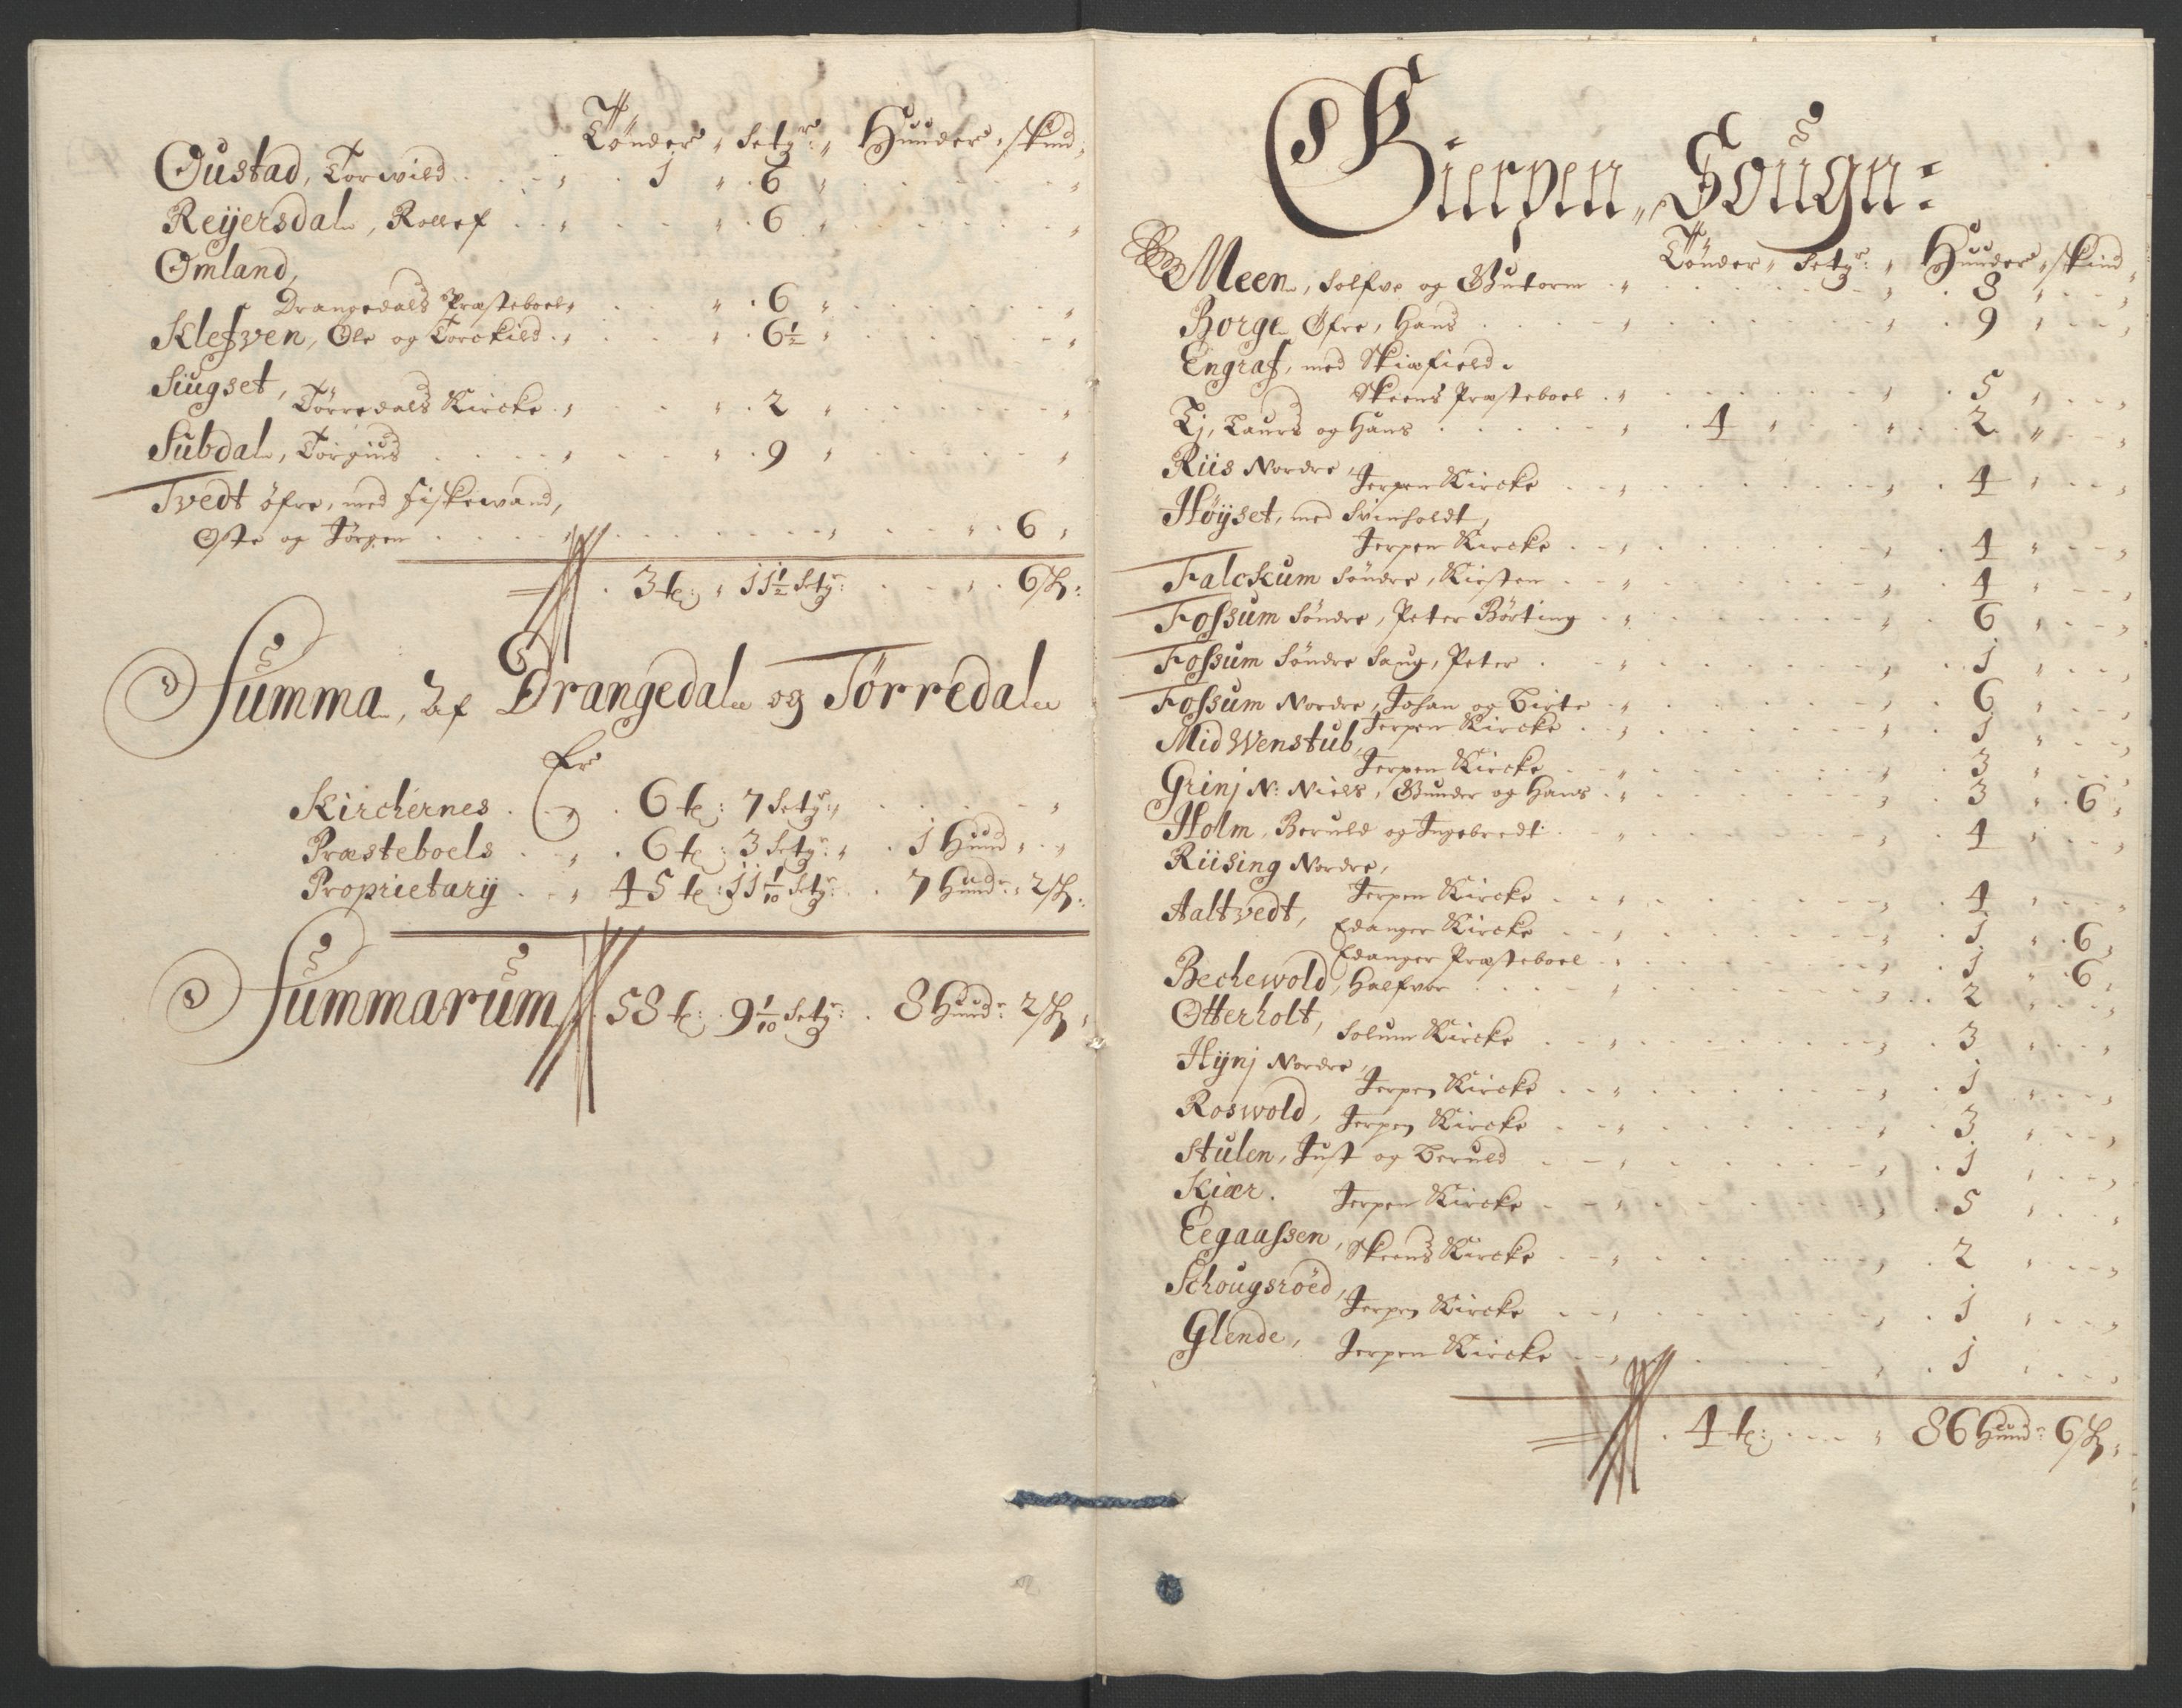 Tönder, Setgr: Hunder, skind,
Oustad, Torwild . . 1 „ 6 „
Reijersdal, Rollef . . „ 6 „
Omland,
Drangedals Præsteboel, . . „ 6 „
Klefven, Ole og Torckild . „ 6½ „
Siugset,
Törredals Kircke . , „ 2 „
Sübdal, Törgius . . „ 9 „
Tvedt öfre, med fiskewand,
Oste og Jörgen . . . . 6 ,
3 tr: „ 11½ Setgr: . . 6 sk:
Summa, Af Drangedal og Törredal
Er
Kirchernes . . 6 tr: 7 Setgr:,
Præsteboels . . 6 tr: 3 Setgr: „ 1 Hund „
Proprietarij . . 45 tr: 11 1/10 Setgr: . 7 Hundr: 2 sk:
Summarum 58 tr: 9 1/10 Setgr: . 8 Hundr: 2 sk,
Gierpen Sougn:
Tönder, Setgr: , Hunder, skind
Meen, Solfve og Gutorm . „ 8 „
Borge Öfre, Hans . . . 9 „
Engraf, med Skiæfield.
Skeens Præsteboel . „ 5 „
Lj, Laurs og Hans . . . 4 „ 2 „
Riis Nordre,
Jerpen Kircke . . 4 „
Höyset, med Svinholdt,
Jerpen Kircke . . 4 „
Falckum Söndre, Kirsten . . 4 „
Fossum Söndre, Peter Börting . „ 6 „
Fossum Söndre Saug, Peter . . „ 1 „
Fossum Nordre, Johan og Birte . „ 6 „
Jerpen Kircke . . 1 „
Mid Wenstub,
Jerpen Kircke . . „ 3 „
Grinj N: Niels, Gunder og Hans . „ 3 „ . 6 ,
Holm, Beruld og Ingebredt . . „ 4 „
Riising Nordre,
Jerpen Kircke . . 4 „
Aaltvedt, Edanger Kircke . . 1 „ . 6 ,
Edanger Præsteboel . . 1 „ . 6 ,
Bechewold, Halfvor . . . 2 „
Otterholt, Solum Kircke . . 3 „
Hijnj Nordre,
Jerpen Kircke . . „ 1 „
Roswold, Jerpen Kircke . . „ 3 „
Stulen, Just og Beruld . . , 1 „
Kiær. Jerpen Kircke . . „ 5 „
Eegaassen, Skeens Kircke . . „ 2 „
Schougsröed,
Jerpen Kircke . . , 1 „
Glende, Jerpen Kircke . . , 1 „
4 tr: . . . 86 Hundr: 6 sk,